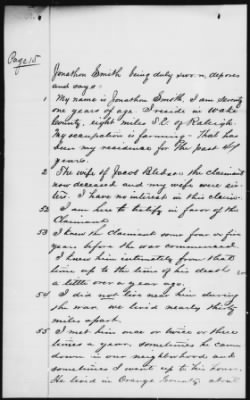 Page 15
Jonathon Smith being duly sworn deposes
and says:
1 My name is Jonathon Smith, I am seventy
one years of age. I reside in Wake
County, eight miles S.E. of Raleigh.
My occupation is farming - That has
been my residence for the past
years.
2 The wife of Jacob Bledsoe the claimant
now deceased and my wife were sis-
ters. I have no interest in this claim.
52 I am here to testify in favor of the
Claimant.
53 I knew the Claimant some four or five
years before the war commenced.
I knew him intimately from that
time up to the time of his death
a little over a year ago.
54 I did not live near him during
the war, we lived nearly thirty
miles apart.
55 I met him once or twice or three
times a year, sometimes he came
down in our neighborhood and
sometimes I went up to his house.
He lived in Orange County, about